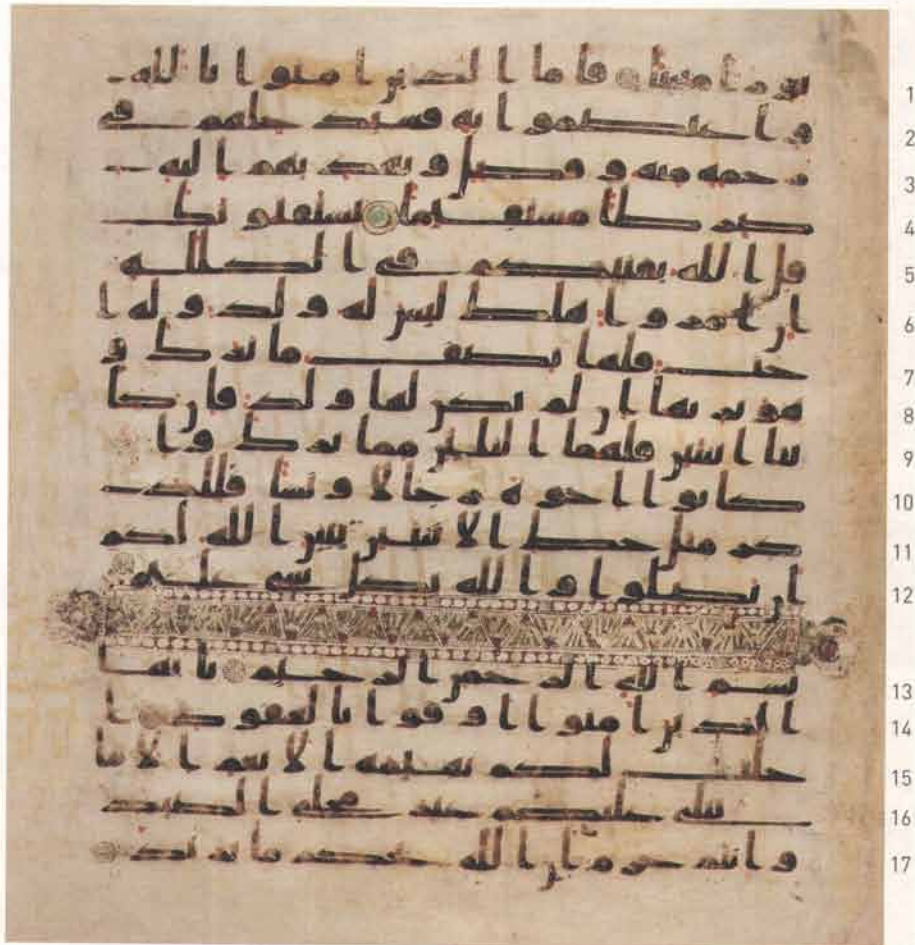 نورا مبينا فاما الذين امنوا بالله 1
واعتصموا به فسيدخلهم في 2
رحمه منه وفضل ويهديهم اليه 3
صرطا مستقيما يستفتونك 4
قل الله يفتيكم في الكلله 5
ان امروا هلك ليس له ولد وله ا 6
خت فلها نصف ما ترك و 7
هو يرثها ان لم يكن لها ولد فان كا 8
نتا اثنتين فلهما الثلثن مما ترك وان 9
كانوا اخوة رجالا ونسا فللذ 10
كر مثل حظ الانثيين يبين الله لكم 11
ان تضلوا والله بكل شي عليم 12
بسم الله الرحمن الرحيم يايها 13
الذين امنوا اوفوا بالعقود ا 14
حلت لكم بهيمه الانعم الا ما 15
يتلى عليكم غير محلي الصيد 16
وانتم حرم ان الله يحكم ما يريد 17